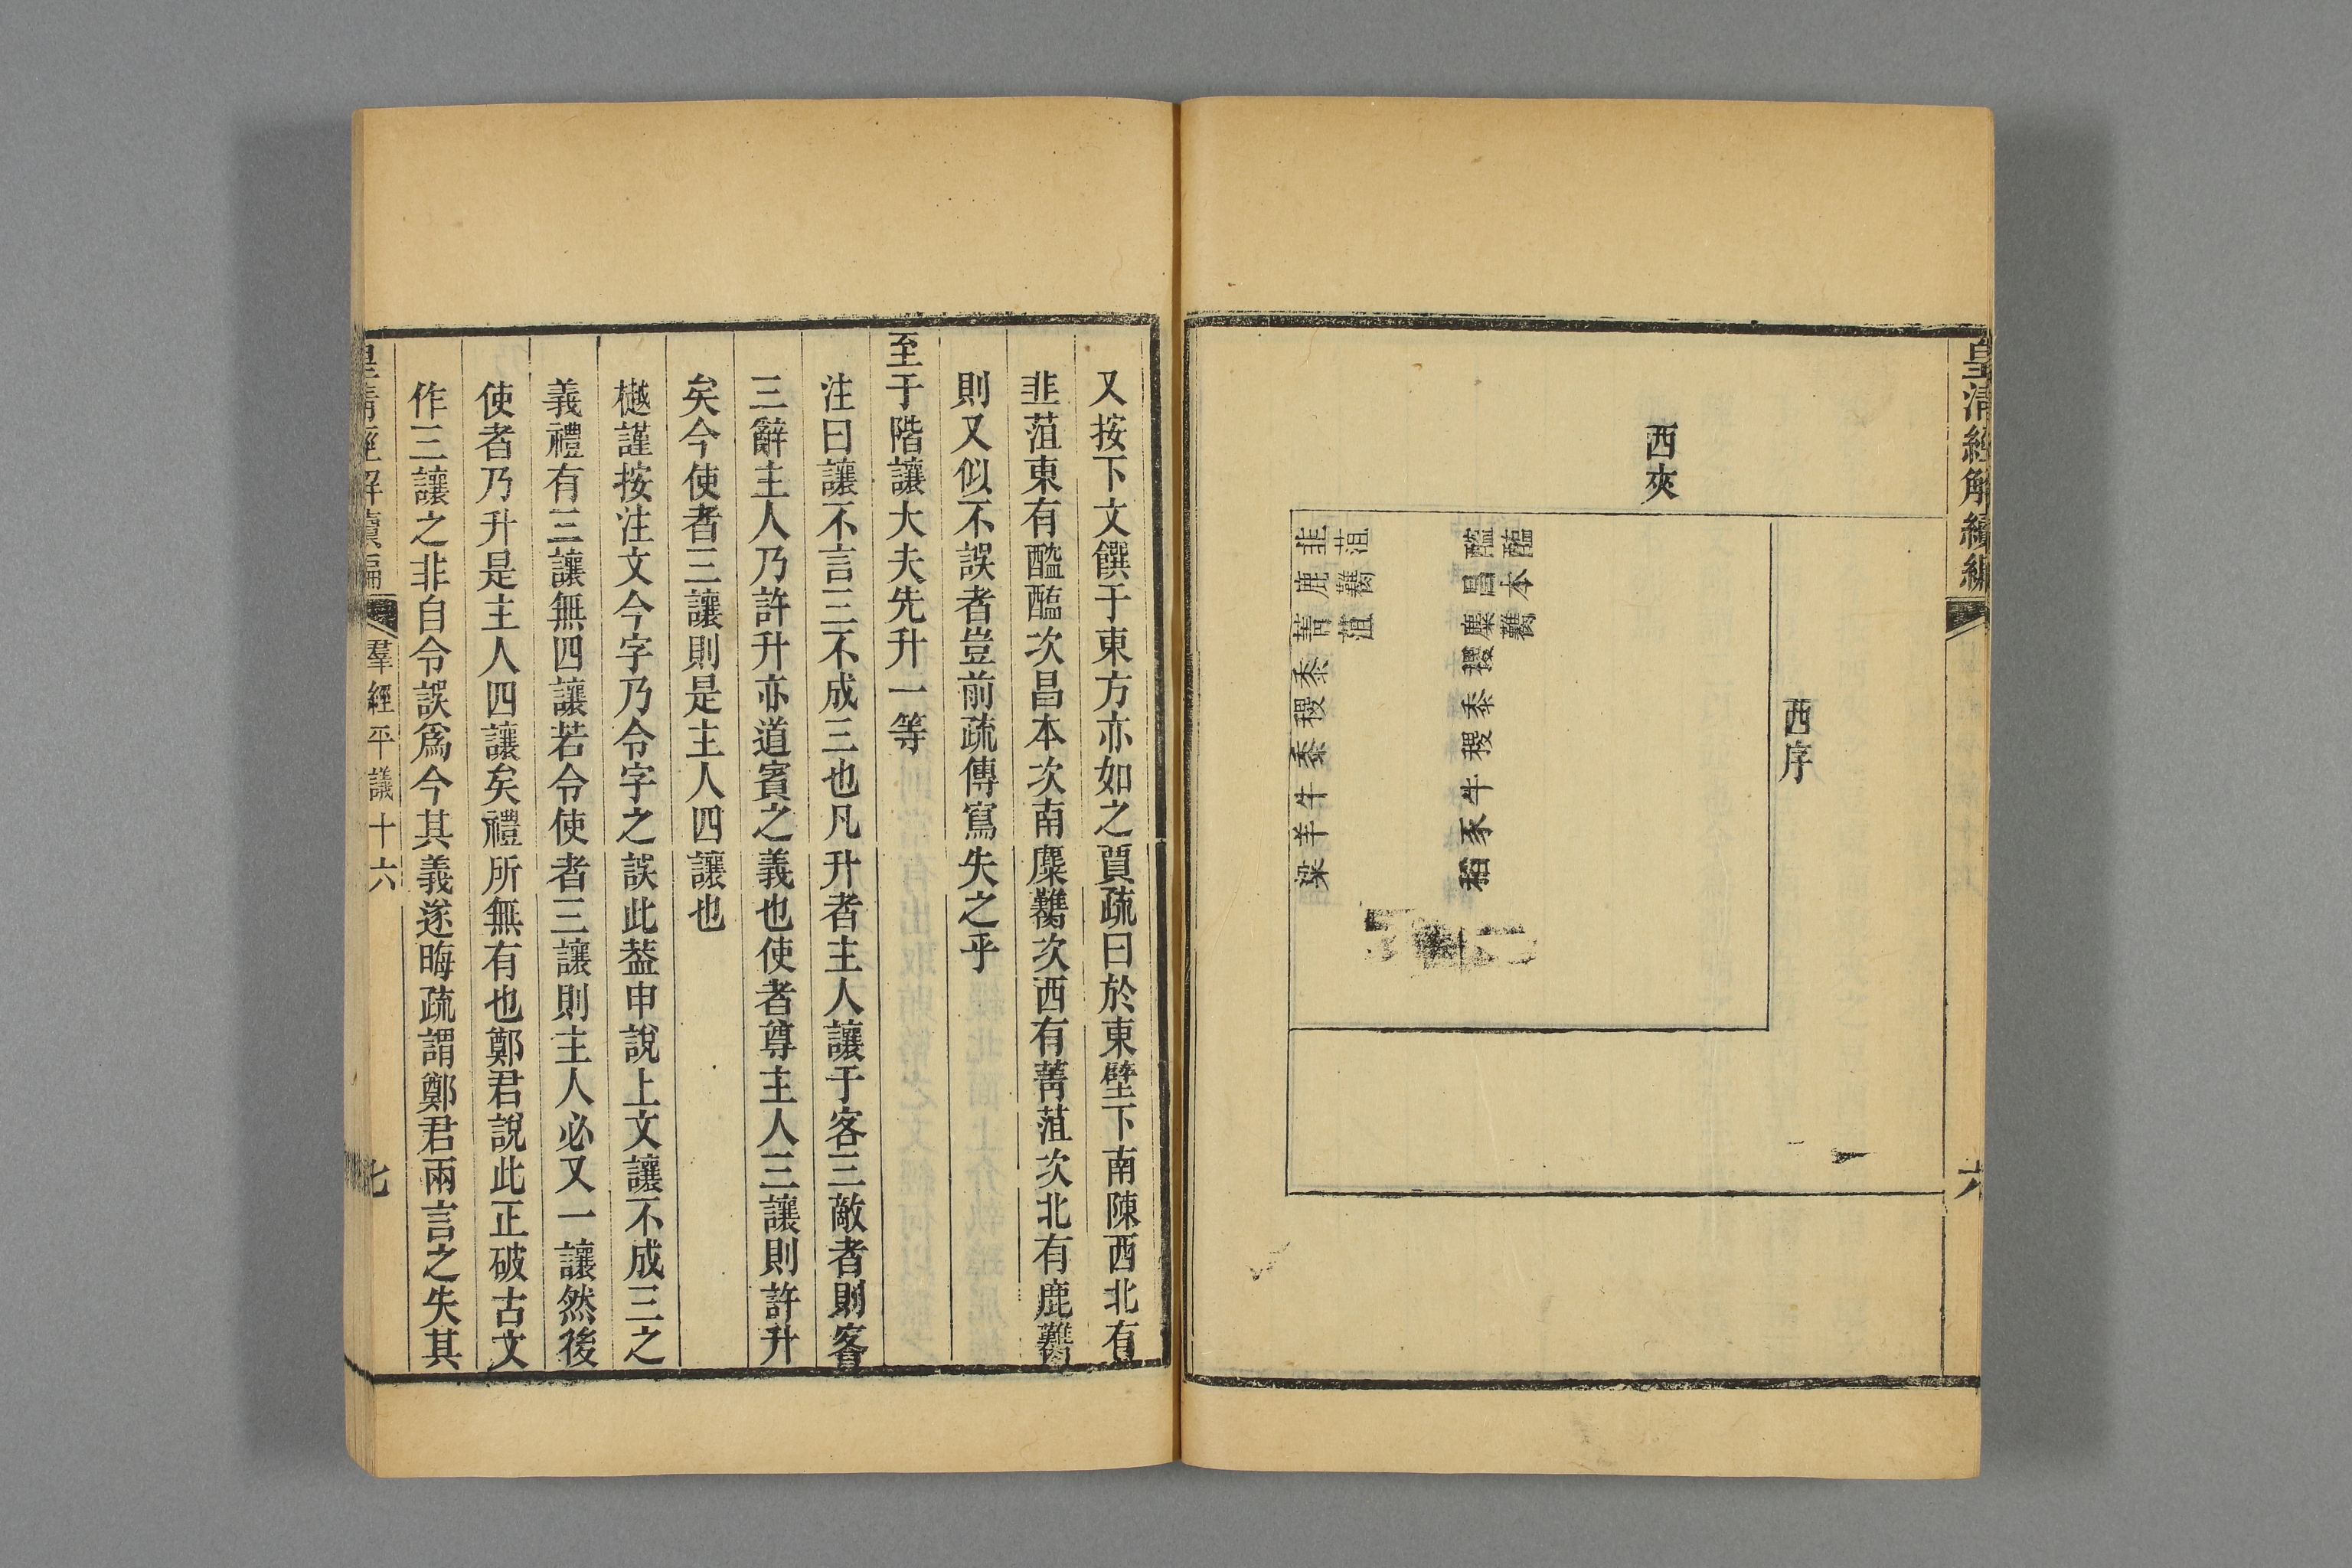 皇清經解續編
六
西夾
西序
醓醢
昌本
麋臡
稷
黍
稷
牛
豕
稻
韭菹
鹿臡
菁菹
黍
稷
黍
牛
羊
粱
又按下文饌于東方亦如之賈疏曰於東壁下南陳西北有
韭菹東有醓醢次昌本次南麋臡次西有菁菹次北有鹿臡
則又似不誤者豈前疏傳寫失之乎
至于階讓大夫先升一等
注曰讓不言三不成三也凡升者主人讓于客三敵者則客
三辭主人乃許升亦道賓之義也使者尊主人三讓則許升
矣今使者三讓則是主人四讓也
樾謹按注文今字乃令字之誤此葢申說上文讓不成三之
義禮有三讓無四讓若令使者三讓則主人必又一讓然後
使者乃升是主人四讓矣禮所無有也鄭君說此正破古文
作三讓之非自令誤爲今其義遂晦疏謂鄭君兩言之失其
皇清經解續編
羣經平議十六
七